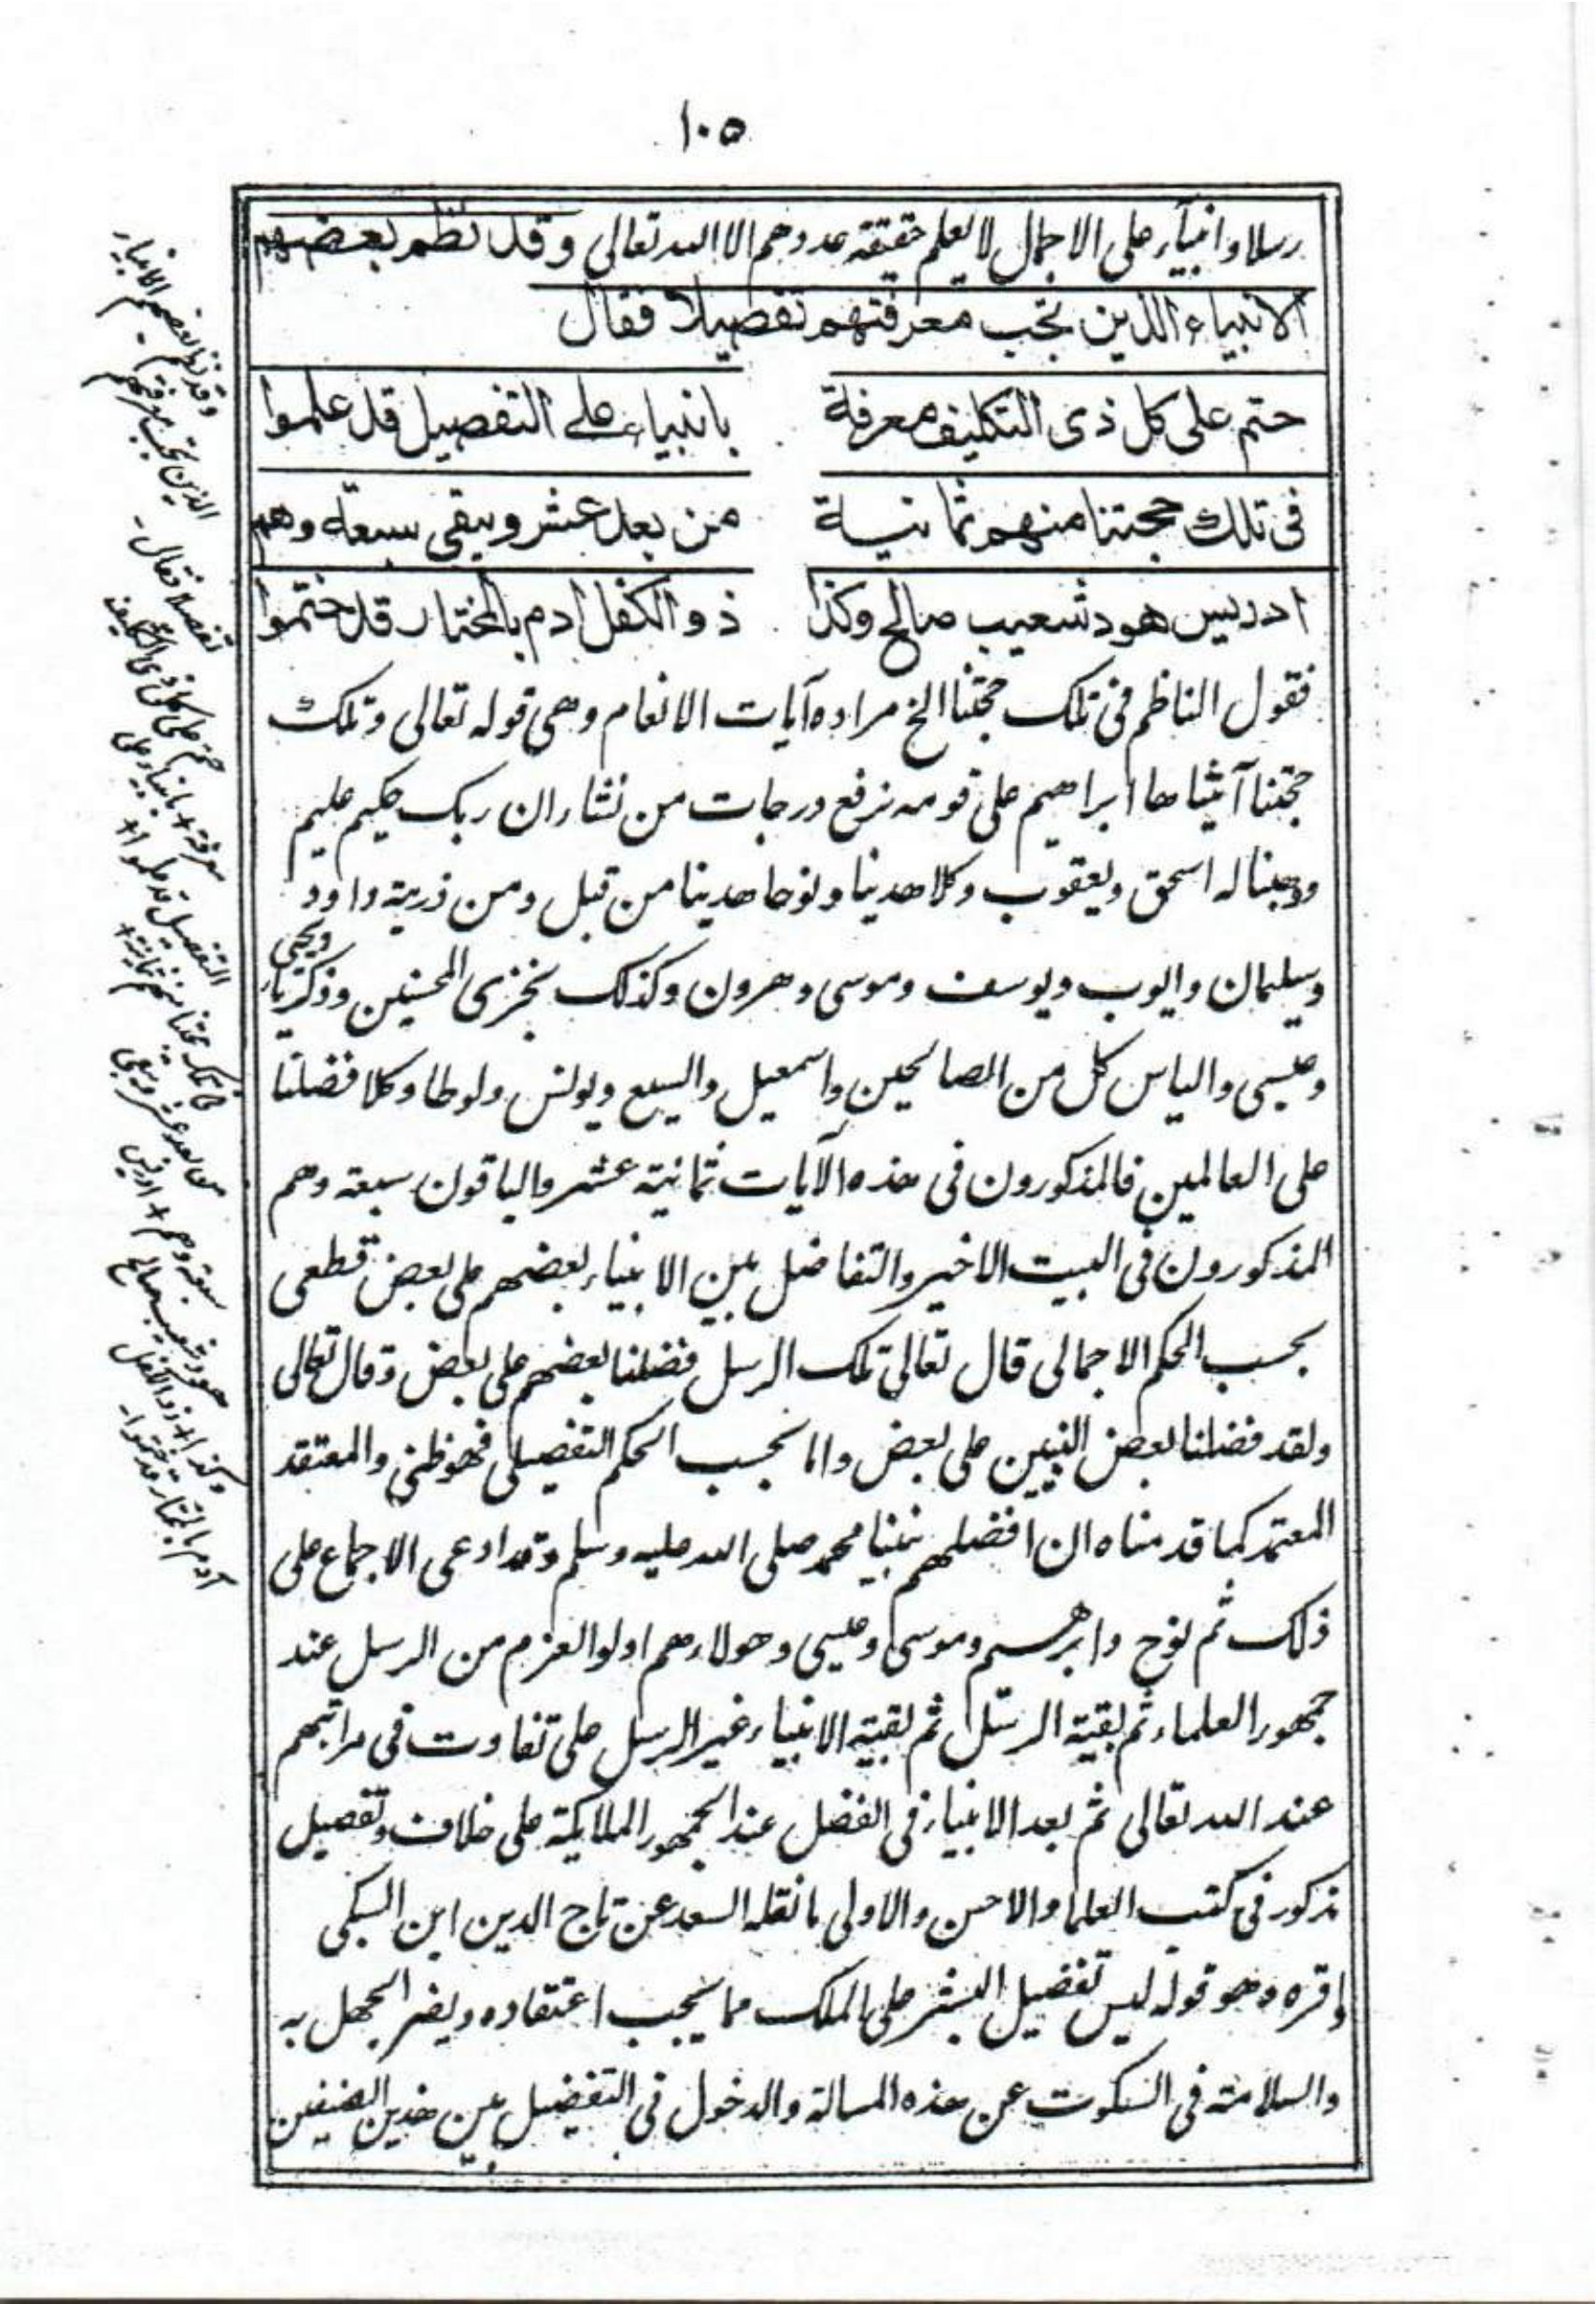 ١٠٥
رسلا وانبيآء على الاجمال لا يعلم حقيقة عددهم الا الله تعالى وقد نظم بعضهم
الانبياء الذين تجب معرفتهم تفصيلا فقال
حتم على كل ذى التكليف معرفة بانبياء على التفصيل قد علموا
فى تلك حجتنا منهم ثمانية من بعد عشر ويبقى سبعة وهم
ادريس هود شعيب صالح وكذا ذو الكفل ادم بالمختار قد ختموا
فقول الناظم فى تلك حجتنا الخ مراده آيات الانعام وهى قوله تعالى وتلك
حجتنا آتيناها ابراهيم على قومه نرفع درجات من نشاء ان ربك حكيم عليم
ووهبنا له اسحق ويعقوب وكلا هدينا ونوحا هدينا من قبل ومن ذريته داود
وسليمان وايوب ويوسف وموسى وهرون وكذلك نجزى المحسنين وذكريا ويحيى
وعيسى والياس كل من الصالحين واسمعيل واليسع ويونس ولوطا وكلا فضلنا
على العالمين فالمذكورون فى هذه الآيات ثمانية عشر والباقون سبعة وهم
المذكورون فى البيت الاخير والتفاضل بين الانبياء بعضهم على بعض قطعى
بحسب الحكم الاجمالى قال تعالى تلك الرسل فضلنا بعضهم على بعض وقال تعالى
ولقد فضلنا بعض النبيين على بعض واما بحسب الحكم التفصيلى فهو ظنى والمعتقد
المعتمد كما قدمناه ان افضلهم نبينا محمد صلى الله عليه وسلم وقد ادعى الاجماع على
ذلك ثم نوح وابرهيم وموسى وعيسى وهولاء هم اولوا العزم من الرسل عند
جمهور العلماء ثم بقية الرسل ثم بقية الانبياء غير الرسل على تفاوت فى مراتبهم
عند الله تعالى ثم بعد الانبياء فى الفضل عند الجمهور الملايكة على خلاف وتفصيل
مذكور فى كتب العلما والاحسن والاولى ما نقله السعد عن تاج الدين ابن السبكى
واقره وهو قوله ليس تفضيل البشر على الملك مما يجب اعتقاده ويضر الجهل به
والسلامة فى السكوت عن هذه المسالة والدخول فى التفضيل بين هذين الصنفين
وقد نظم بعضهم الانبياء
الذين تجب معرفتهم
تفصيلا فقال -
حتم على كل ذى التكليف
معرفة + بانبياء على
التفصيل قد علموا +
فى تلك حجتنا منهم ثمانية +
من بعد عشر ويبقى
سبعة وهم + ادريس
هود شعيب صالح
وكذا + ذو الكفل
آدم بالمختار قد ختموا -